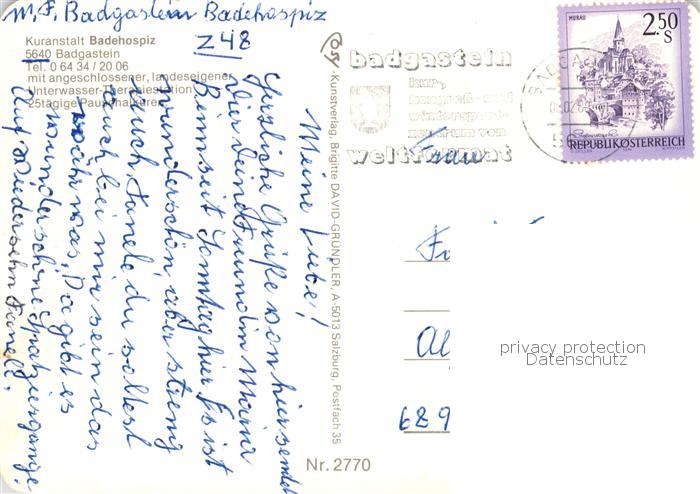 M. F. Badgastein Badehospiz
Z 48
Kuranstalt Badehospiz
5640 Badgastein
Tel. 0 64 34 / 20 06
mit angeschlossener, landeseigener
Unterwasser-Therapiestation
25tägige Pauschalkuren
Meine Liebe!
Herzliche Grüße von hier sendet
Dir deine Freundin Maina
Bin seit Sonntag hier Es ist
wunderschön, aber streng
Auch, Fanele du solltest
auch bei mir sein das
währ was, Da gibt es
wunderschöne Spatziergänge.
Auf Wiedersehn Fanele.
Cosy-Kunstverlag, Brigitte DAVID-GRÜNDLER, A-5013 Salzburg, Postfach 35
Nr. 2770
badgastein
kur-,
kongreß- und
wintersport-
zentrum von
weltformat
BADGAS
MURAU
2.50
S
REPUBLIK ÖSTERREICH
Frau
Fa
Al
689
privacy protection
Datenschutz